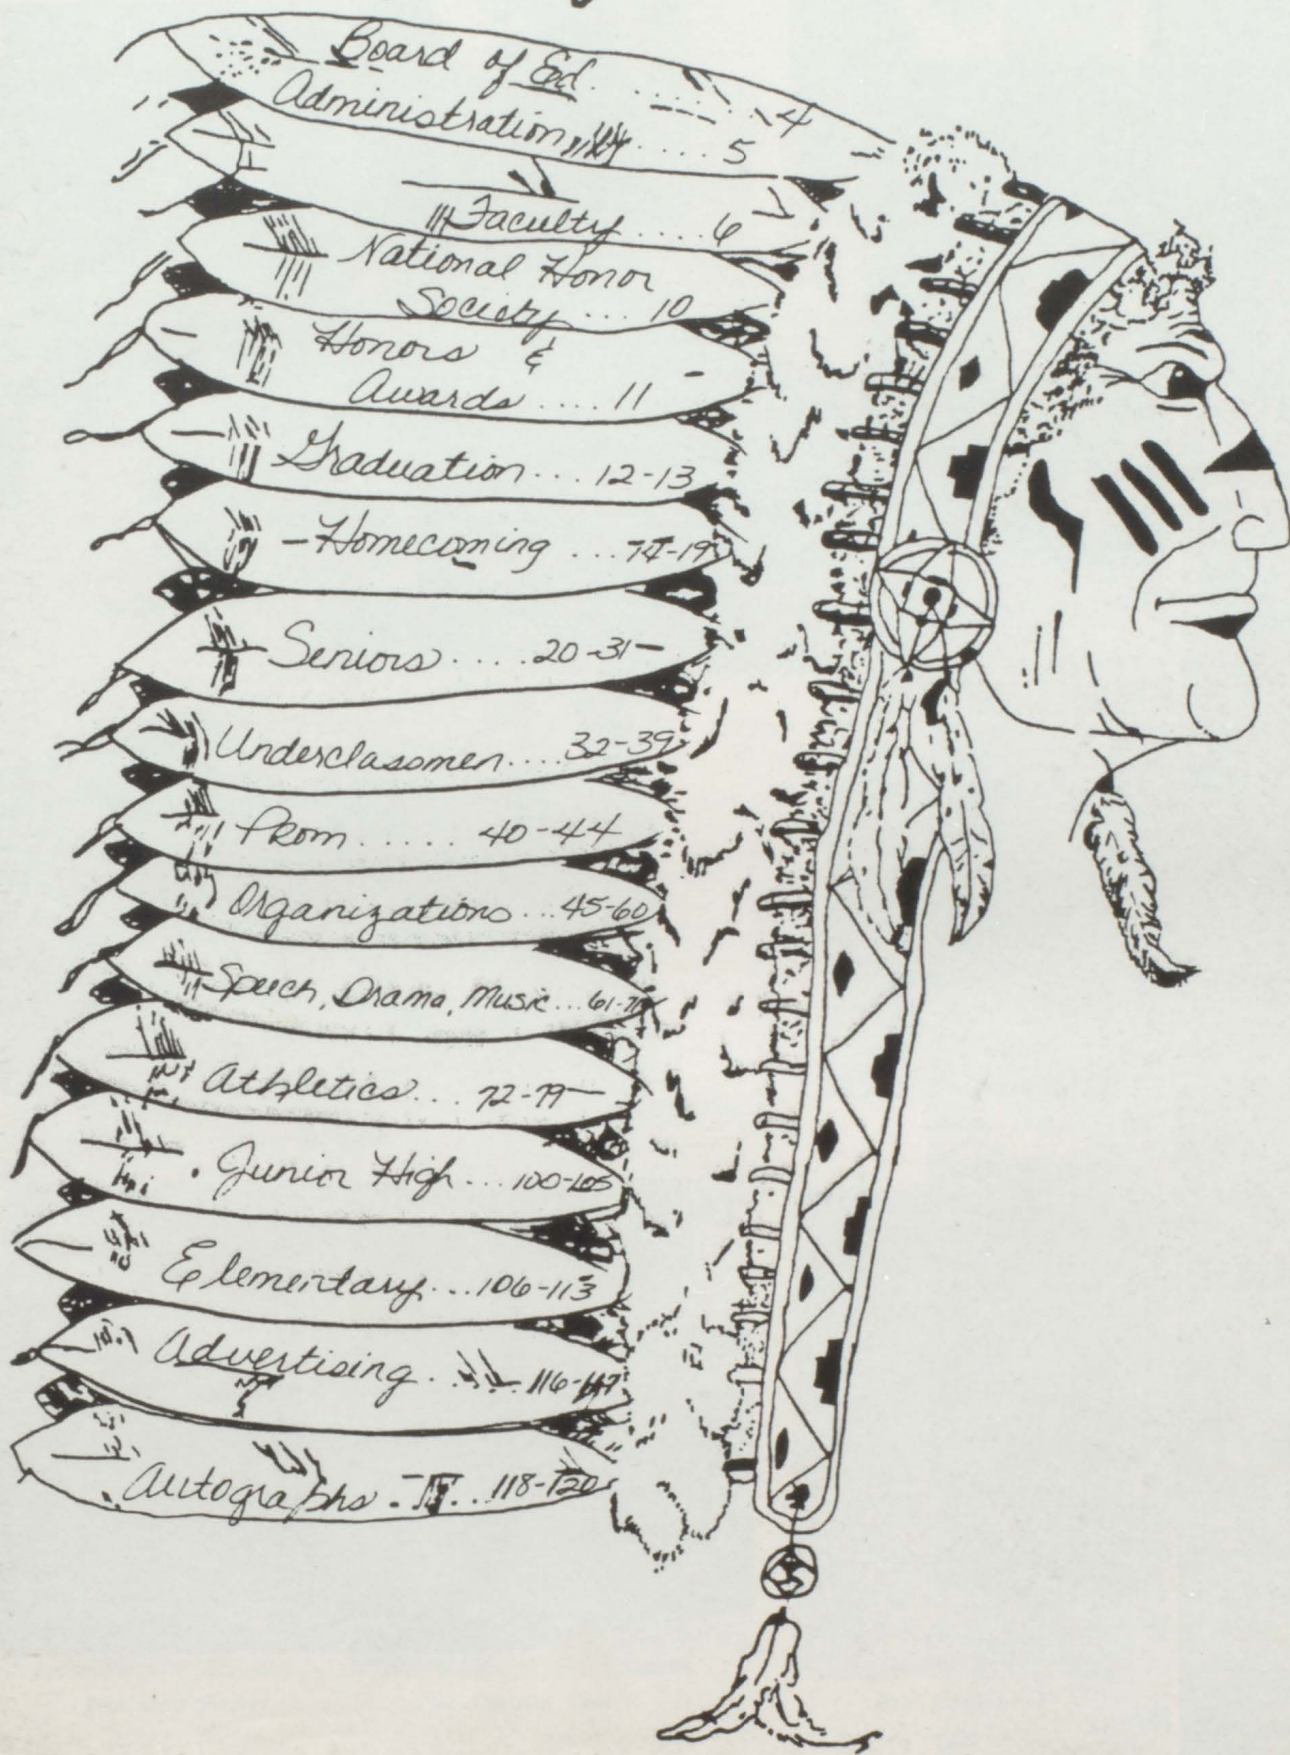 Board of Ed. ....... 4
Administration ..... 5
Faculty .... 6
National Honor
Society ... 10
Honors &
Awards .... 11
Graduation ... 12-13
Homecoming ... 14-19
Seniors .... 20-31
Underclassmen .... 32-39
Prom ..... 40-44
Organizations ... 45-60
Speech, Drama, Music ...
Athletics ...
Junior High ... 100-105
Elementary ... 106-113
Advertising ...
Autographs ... 118-120